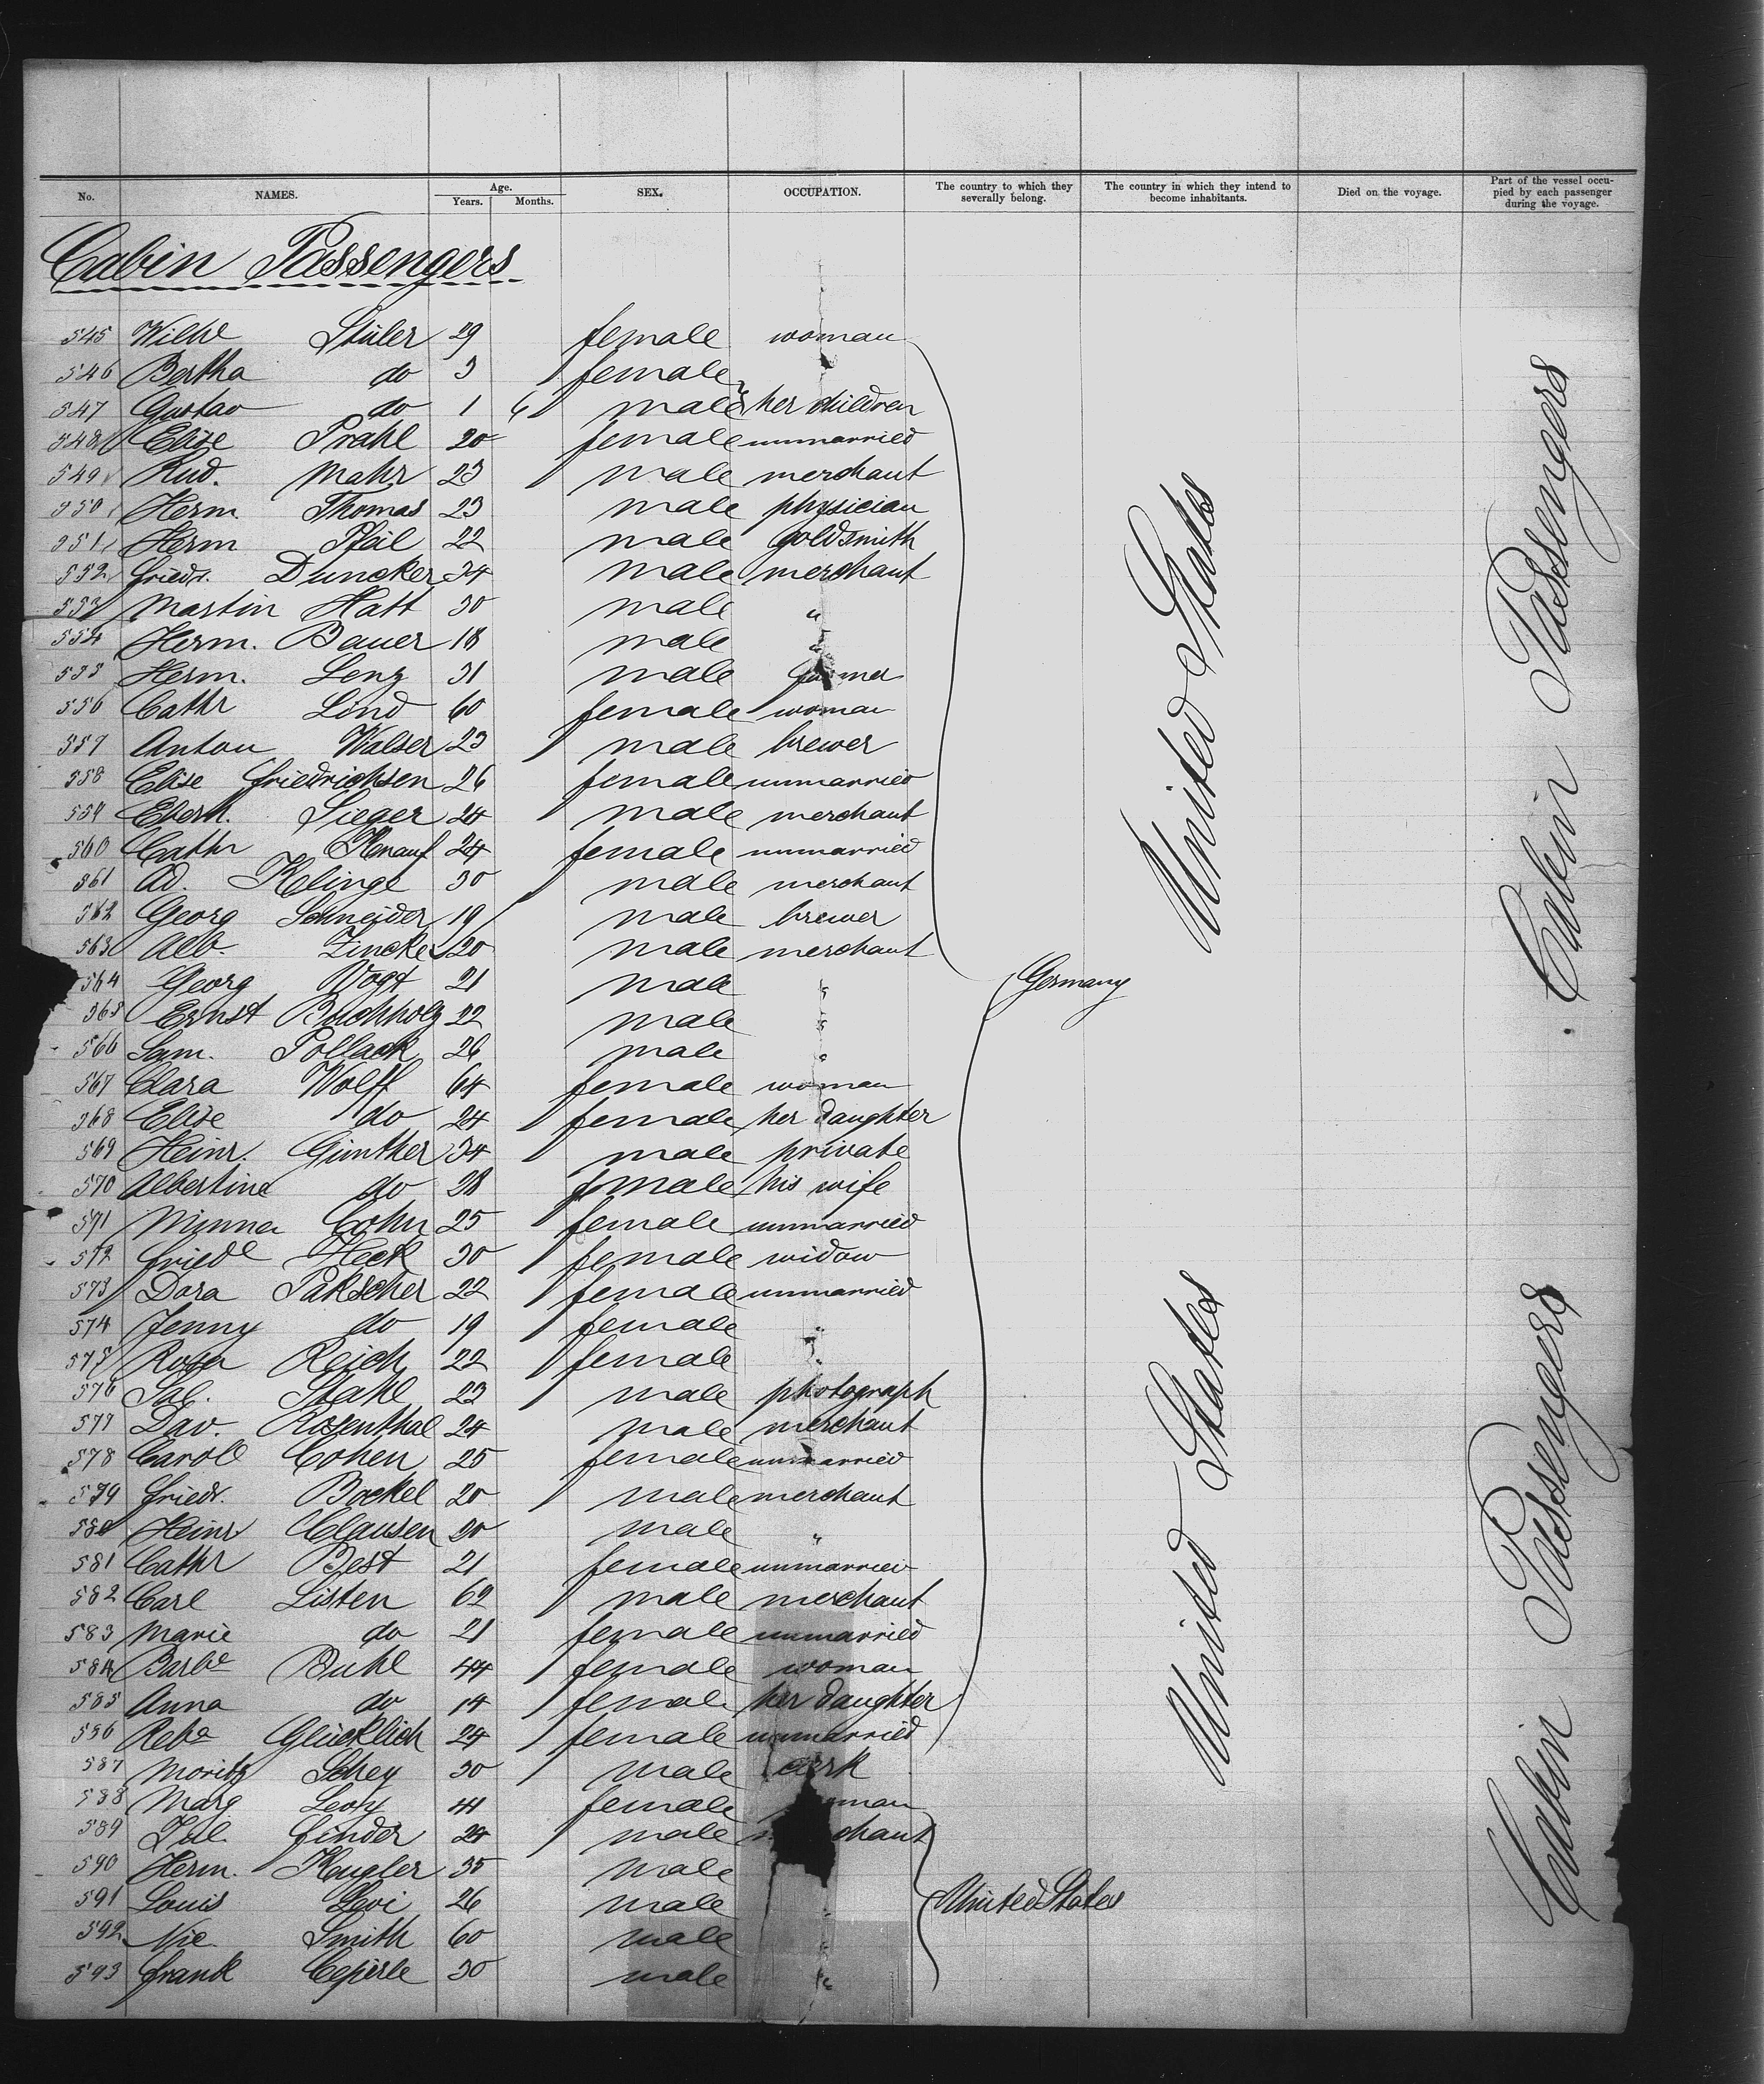 No. NAMES. Age. Years. Months. SEX. OCCUPATION. The country to which they severally belong. The country in which they intend to become inhabitants. Died on the voyage. Part of the vessel occupied by each passenger during the voyage.
Cabin Passengers
545 Wilhe Stüler 29 female woman
546 Bertha do 3 female
547 Gustav do 1 6 male her children
548 Elise Prahl 20 female unmarried
549 Rud. Mahr 23 male merchant
550 Herm Thomas 23 male physician
551 Herm Pfeil 22 male goldsmith
552 Friedr. Duncker 34 male merchant
553 Martin Hatt 30 male "
554 Herm. Bauer 18 male "
555 Herm. Lenz 31 male farmer
556 Cathr Lind 60 female woman
557 Anton Walser 23 male brewer
558 Elise Friedrichsen 26 female unmarried
559 Eberh. Sieger 24 male merchant
560 Cathr Henauf 24 female unmarried
561 Ad. Klinge 30 male merchant
562 Georg Schneider 19 male brewer
563 Alb. Zincke 20 male merchant
564 Georg Vogt 21 male "
Germany
565 Ernst Buchholz 22 male "
566 Sam. Pollack 26 male "
567 Clara Wolff 64 female woman
568 Elise do 24 female her daughter
569 Heinr. Günther 34 male private
570 Albertine do 28 female his wife
571 Minna Cohn 25 female unmarried
572 Friede Heck 30 female widow
573 Dora Pakscher 22 female unmarried
574 Jenny do 19 female "
575 Rosa Reich 22 female "
576 Sal. Stahl 23 male photograph
577 Dav. Rosenthal 24 male merchant
578 Carole Cohen 25 female unmarried
579 Friedr. Bockel 20 male merchant
580 Heinr Clausen 20 male "
581 Cathr Best 21 female unmarried
582 Carl Listen 62 male merchant
583 Marie do 21 female unmarried
584 Barbe Buhl 44 female woman
585 Anna do 14 female her daughter
586 Reba Glücklich 24 female unmarried
587 Moritz Schey 30 male
588 Marg Levy 41 female
589 Jul Finder 24 male
590 Herm. Kugler 35 male
591 Louis Levi 26 male
United States
592 Nic Smith 60 male "
593 Frank Ceperle 30 male "
United States
United States
Cabin Passengers
Cabin Passengers